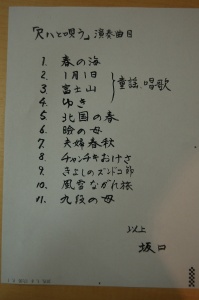 「尺八と唄う」演奏曲目
1. 春の海
2. 1月1日
3. 富士山
4. ゆき
童謡、唱歌
5. 北国の春
6. 瞼の母
7. 夫婦春秋
8. チャンチキおけさ
9. きよしのズンドコ節
10. 風雪ながれ旅
11. 九段の母
以上
坂口